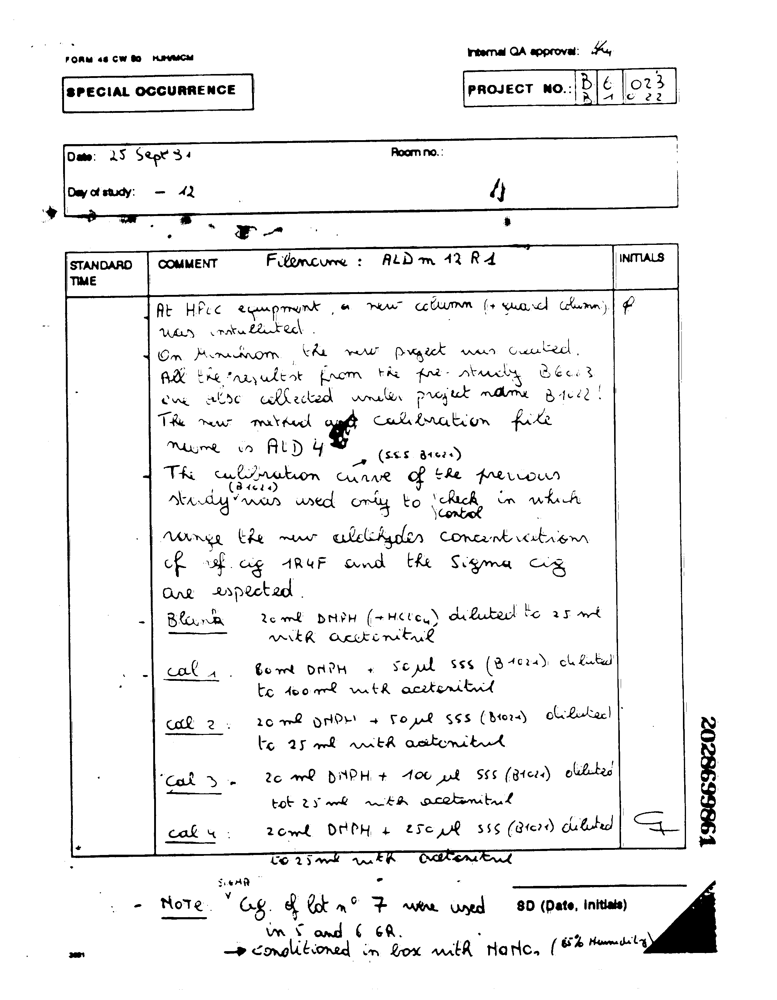 FORM 46 CW 90 HJH/MCM
Internal QA approval:
SPECIAL OCCURRENCE
PROJECT NO.: B 6 023
B 1 022
Date: 25 Sept 91
Room no.:
Day of study: - 12
STANDARD TIME
COMMENT Filename: ALD m 12 R1
INITIALS
- At HPLC equipment, a new column (+ guard column)
was installated.
- On the new project was created.
All the results from the pre-study
are also collected under project name B1022!
The new method and calibration file
name is ALD 4
(SSS B1021)
- The calibration curve of the previous
(B1021)
study was used only to check in which
control
range the new aldehydes concentrations
of ref. cig 1R4F and the Sigma cig
are espected.
- Blank 20 ml DNPH (+HClO4) diluted to 25 ml
with acetonitril
- cal 1. 80 ml DNPH + 50 µl SSS (B1021) diluted
to 100 ml with acetonitril
cal 2: 20 ml DNPH + 50 µl SSS (B1021) diluted
to 25 ml with acetonitril
cal 3 - 20 ml DNPH + 100 µl SSS (B1021) diluted
tot 25 ml with acetonitril
cal 4: 20 ml DNPH + 250 µl SSS (B1021) diluted
to 25 ml with acetonitril
SIGMA
- NOTE Cig. of lot n° 7 were used
in 5 and 6 GR.
→ conditioned in box with (65% Humidity)
SD (Date, initials)
2028699861